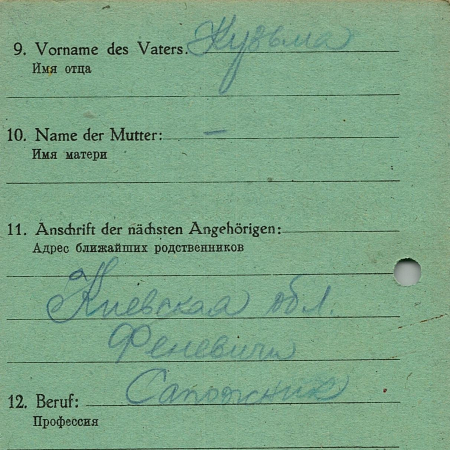 9. Vorname des Vaters: Кузьма
Имя отца
10. Name der Mutter: —
Имя матери
11. Anschrift der nächsten Angehörigen:
Адрес ближайших родственников
Киевская обл.
Феневичи
12. Beruf: Сапожник
Профессия